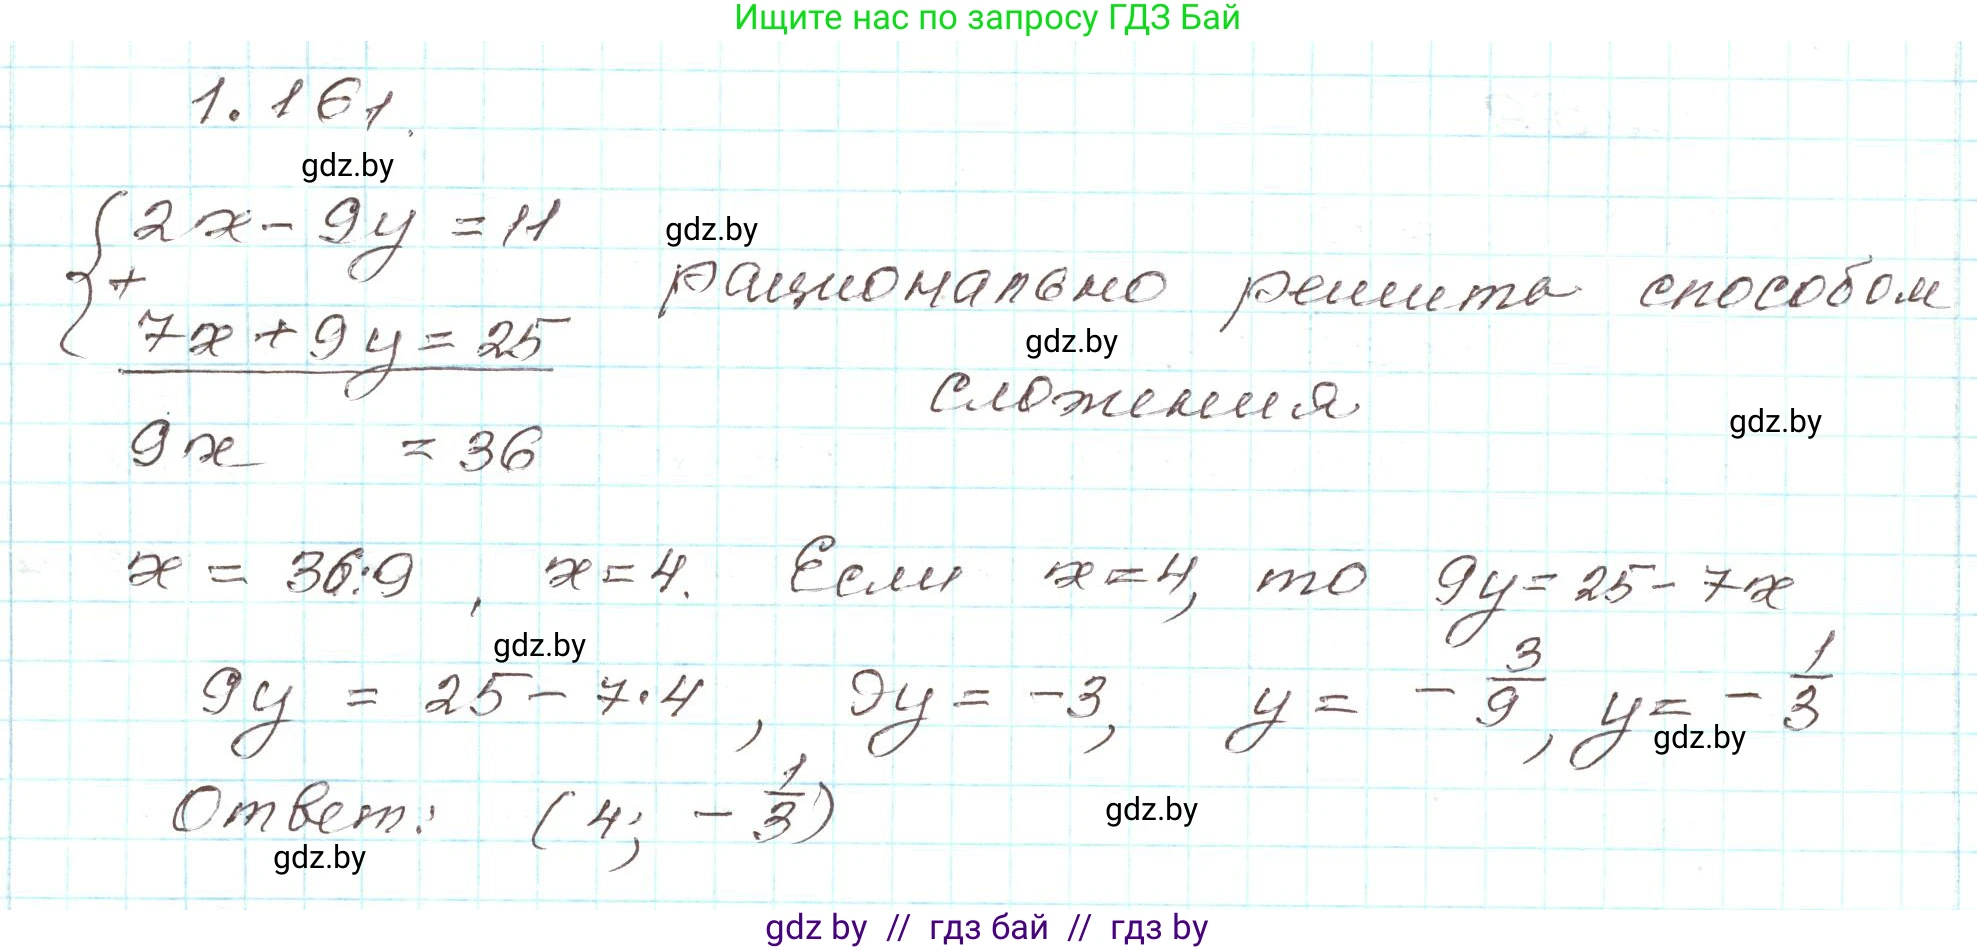 Ищите нас по запросу ГДЗ Бай
1.161.
gdz.by
2x - 9y = 11
gdz.by
+
рационально решить способом
7x + 9y = 25
gdz.by
сложения
gdz.by
9x = 36
x = 36:9, x = 4. Если x = 4, то 9y = 25 - 7x
gdz.by
9y = 25 - 7·4, 9y = -3, y = - 3/9, y = - 1/3
gdz.by
Ответ: (4; - 1/3)
gdz.by
gdz.by
gdz by // гдз бай // гдз by